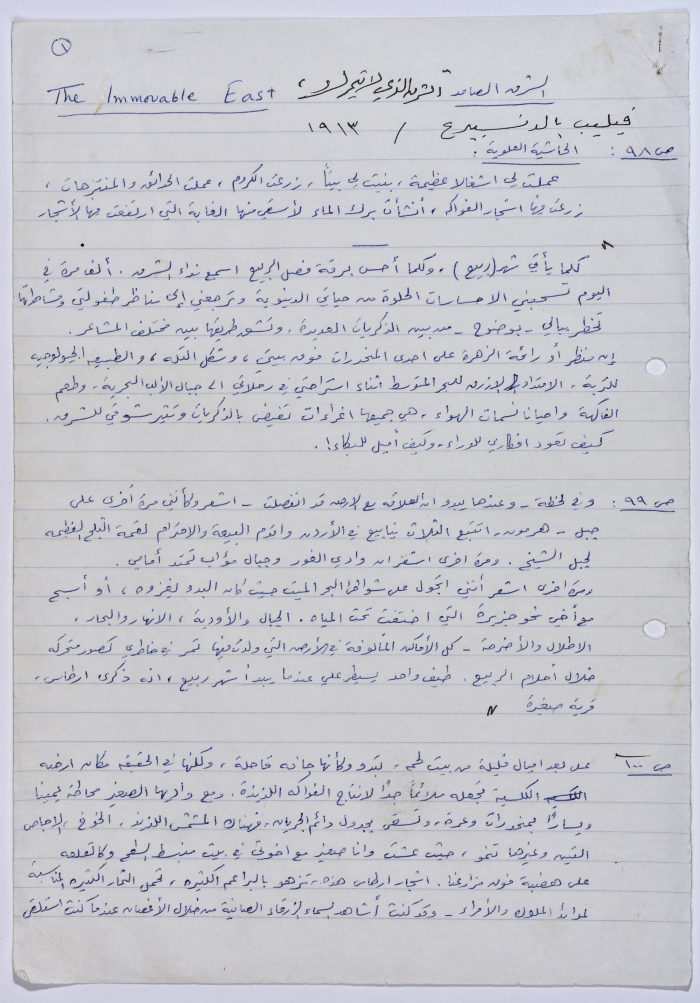 ١
الشرق الصامد "الشرق الذي لا يتحرك"، The Immovable East
فيليب بالدنسبيرغ / ١٩١٣
ص ٩٨ : الحاشية العلوية :
عملت لي اشغالا عظيمة، بنيت لي بيتاً، زرعت الكروم، عملت الحدائق والمنتزهات،
زرعت فيها اشجار الفواكه، أنشأت برك الماء لأسقي منها الغابة التي ارتفعت فيها الأشجار
كلما يأتي شهر (ربيع)، وكلما أحس برقة فصل الربيع اسمع نداء الشرق. ألف مرة في
اليوم تسحبني الاحساسات الحلوة من حياتي الدينوية وترجعني إلى مناظر طفولتي ومشاهداتها
تخطر ببالي - بوضوح - من بين الذكريات العديدة. وتشق طريقها بين مختلف المشاعر.
إن منظر أو رائحة الزهرة على احدى المنحدرات فوق بيتي، وشكل التلة، والطبيعة الجيولوجية
للتربة، الامتداد الازرق للبحر المتوسط أثناء استراحتي في رحلاتي الى جبال الألب البحرية، وطعم
الفاكهة واحيانا نسمات الهواء، هي جميعها اغراءات تفيض بالذكريات وتثير شوقي للشرق.
كيف تعود افكاري للوراء، وكيف أميل للبكاء!.
ص ٩٩ : وفي لحظة - وعندها يبدو ان العلاقة مع الارض قد انفصلت - اشعر وكأنني مرة أخرى على
جبل - هرمون، اتتبع الثلاث ينابيع في الأردن واقدم البيعة والاحترام لقمة الثلج العظيمة
لجبل الشيخ. ومرة اخرى اشعر ان وادي الغور وجبال مؤاب تمتد أمامي.
ومرة اخرى اشعر أنني اتجول على شواطئ البحر الميت حيث كان البدو ليغزوه، أو أسبح
مع أخي نحو جزيرةً التي اختفت تحت المياه. الجبال والأودية، الانهار والبحار،
الاطلال والأضرحة - كل الأماكن المألوفة في الأرض التي ولدت فيها تمر في خاطري كصور متحركة
خلال أحلام الربيع. طيف واحد يسيطر علي عندما يبدأ شهر ربيع، انه ذكرى ارطاس،
قرية صغيرة
ص ١٠٠ : على بعد اميال قليلة من بيت لحم، تبدو وكأنها جافة قاحلة، ولكنها في الحقيقة مكان ارضه
الكلسية تجعله ملائماً جداً لانتاج الفواكه اللذيذة. ومع واديها الصغير محاطة يميناً
ويساراً بمنحدرات وعرة، وتسقى بجدول دائم الجريان، فهناك المشمش اللذيذ. الخوخ، الاجاص
التين وغيرها تنمو، حيث عشت وانا صغير مع اخوتي في بيت منبسط السطح وكالقلعة
على هضبة فوق مزارعنا. اشجار ارطاس هذه، تزهو بالبراعم الكثيرة، تحمل الثمار الكثيرة المناسبة
لموائد الملوك والأمراء - وقد كنت أشاهد السماء الزرقاء الصافية من خلال الأغصان عندما كنت استلقي